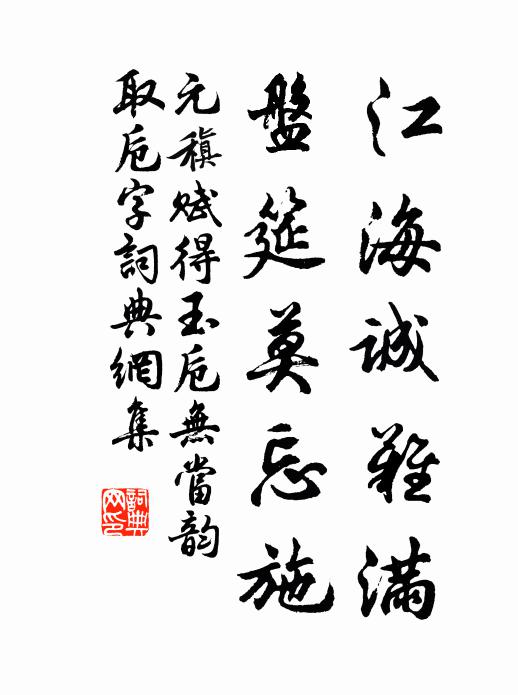 江海誠難滿
盤筵莫忘施
元稹賦得玉卮無當韵
取卮字詞典網集
詞典网印